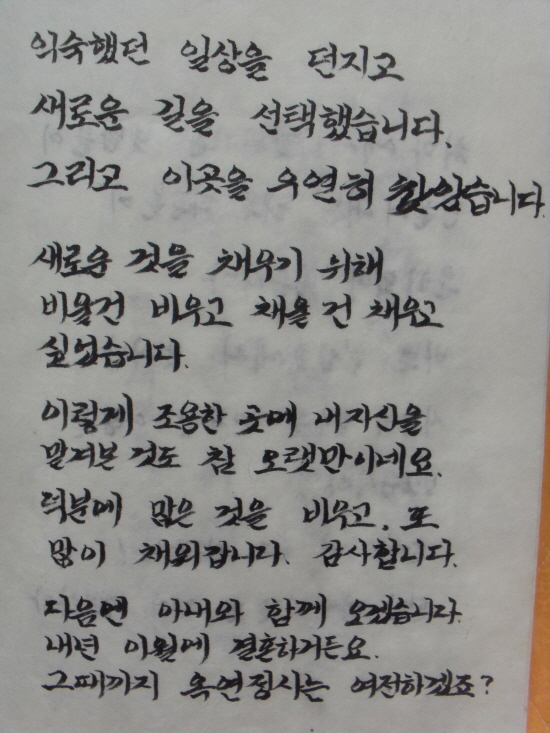 익숙했던 일상을 던지고
새로운 길을 선택했습니다.
그리고 이곳을 우연히 찾았습니다.
새로운 것을 채우기 위해
비울건 비우고 채울 건 채우고
싶었습니다.
이렇게 조용한 곳에 내자신을
맡겨본 것도 참 오랫만이네요.
덕분에 많은 것을 비우고, 또
많이 채워갑니다. 감사합니다.
다음엔 아내와 함께 오겠습니다.
내년 이월에 결혼하거든요.
그때까지 옥연정사는 여전하겠죠?